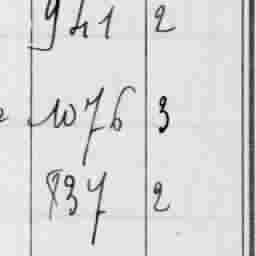 941 2
1076 3
837 2